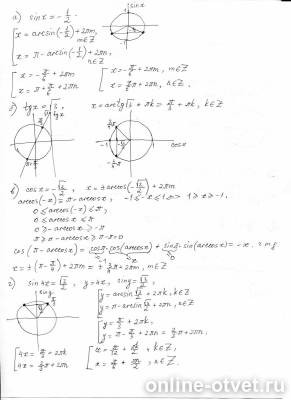 sin x
а) sin x = -1/2.
[x = arcsin(-1/2) + 2πm, m∈Z
x = π - arcsin(-1/2) + 2πn, n∈Z
[x = -π/6 + 2πm
x = π + π/6 + 2πn
[x = -π/6 + 2πm, m∈Z
x = 7/6 π + 2πn, n∈Z.
б) tg x = √3.
x = arctg √3 + πk = π/3 + πk, k∈Z
tg x
cos x
в) cos x = -√2/2, x = ± arccos(-√2/2) + 2πm
arccos(-x) = π - arccos x, -1 ≤ -x ≤ 1 => 1 ≥ x ≥ -1.
0 ≤ arccos(-x) ≤ π,
0 ≤ arccos x ≤ π
0 ≥ -arccos x ≥ -π
π ≥ π - arccos x ≥ π - π = 0
cos(π - arccos x) = cos π · cos(arccos x) + sin π · sin(arccos x) = -x, з.т.д.
x = ±(π - π/4) + 2πm = ± 3/4 π + 2πm, m∈Z
г) sin 4x = √3/2, y = 4x, sin y = √3/2,
[y = arcsin √3/2 + 2πk, k∈Z
y = π - arcsin √3/2 + 2πn, n∈Z
[y = π/3 + 2πk,
y = π - π/3 + 2πn = 2/3 π + 2πn,
[4x = π/3 + 2πk
4x = 2/3 π + 2πn
[x = π/12 + πk/2, k∈Z,
x = π/6 + πn/2, n∈Z.
online-otvet.ru